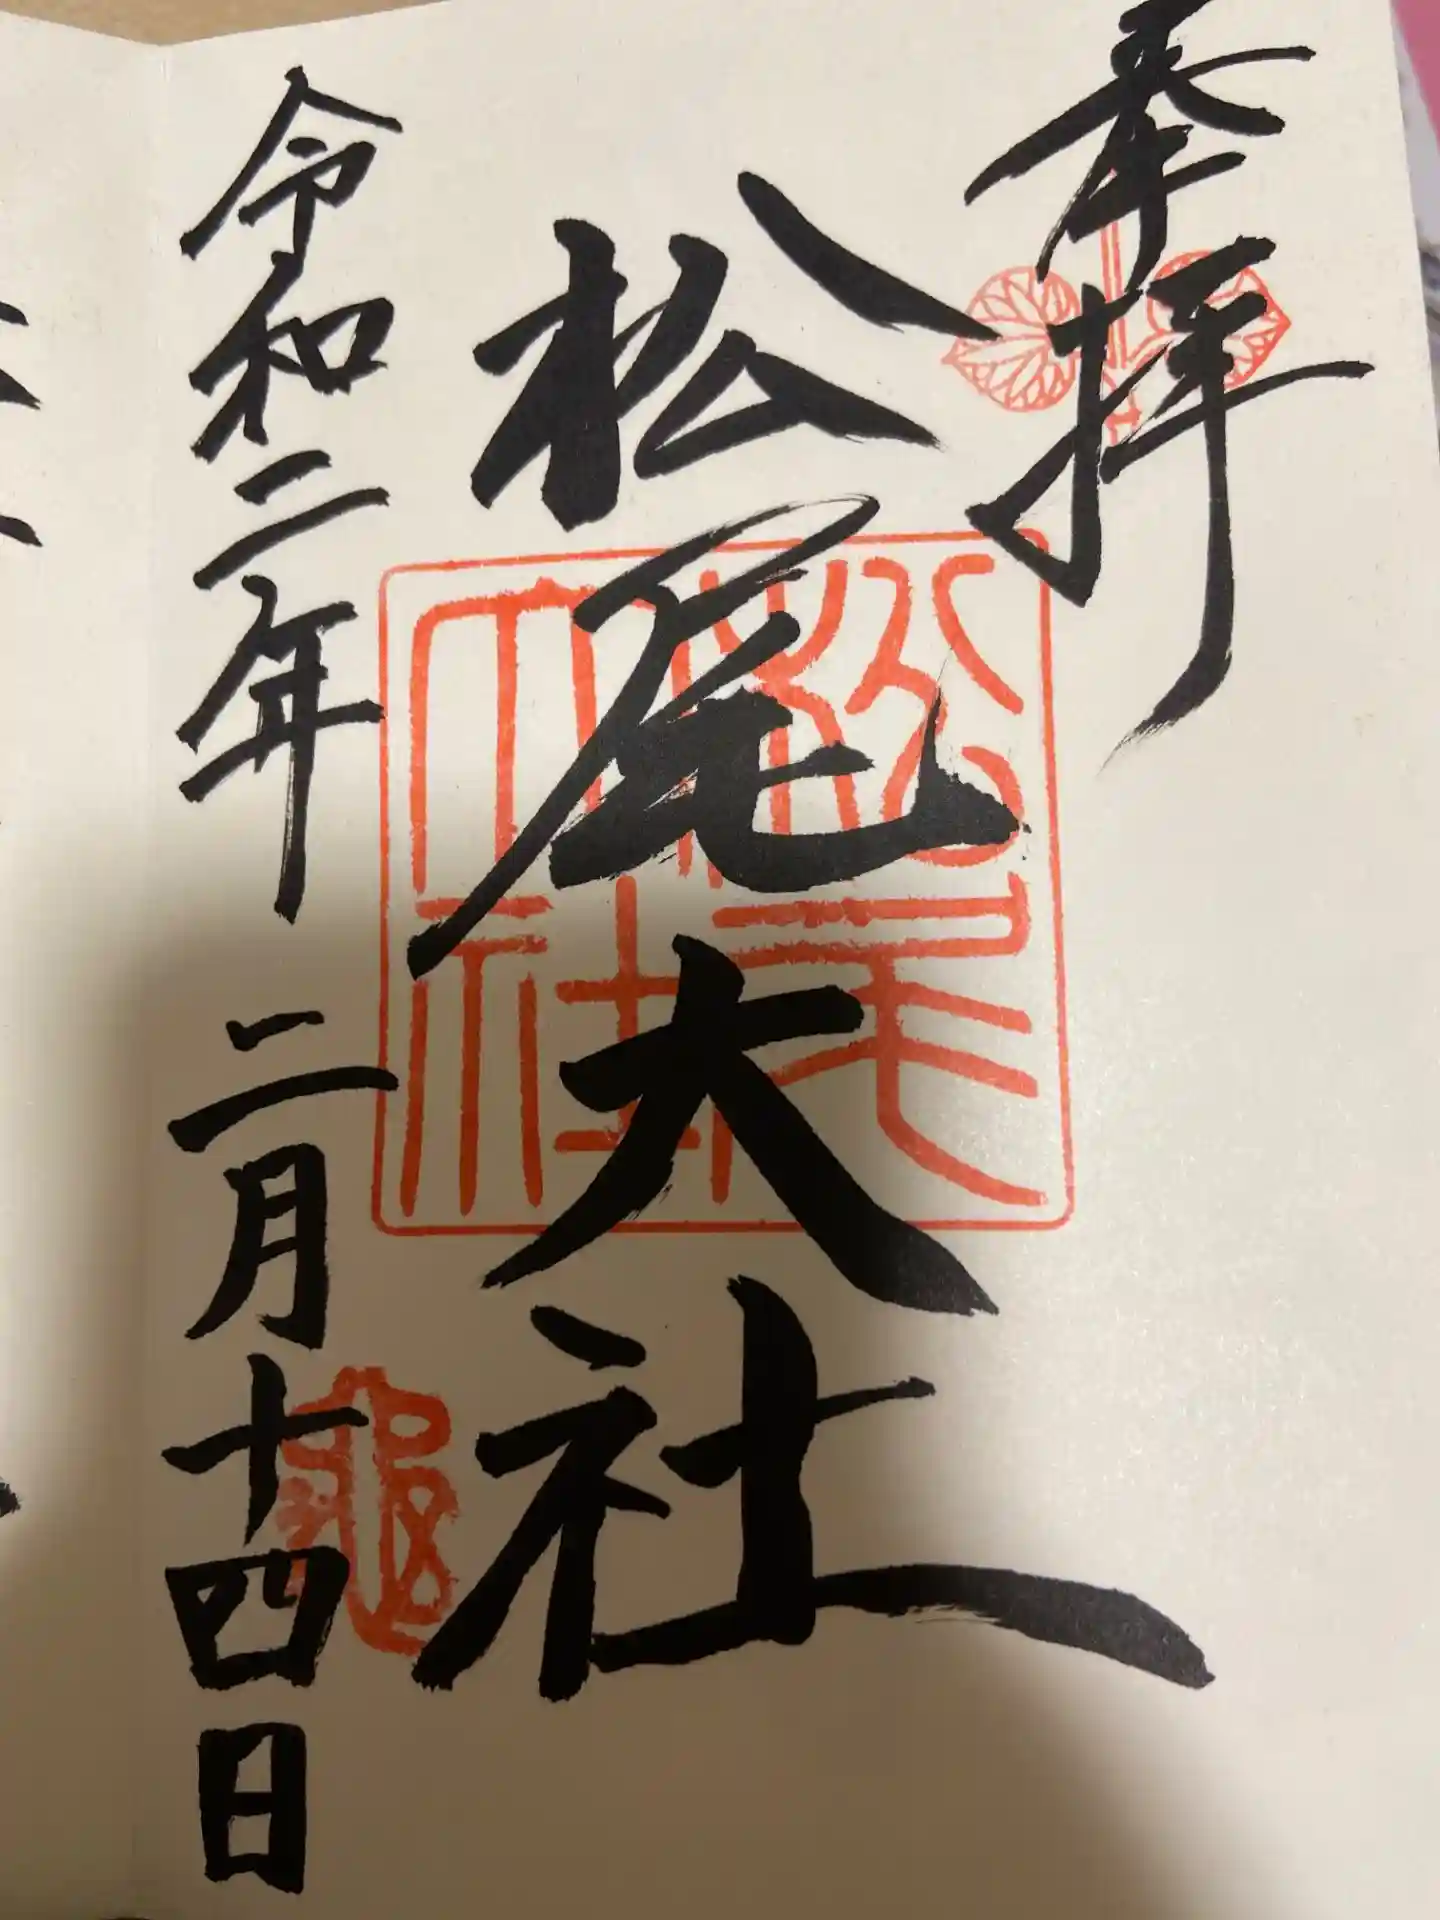 奉拝
松尾大社
松尾大社
令和二年 二月十四日